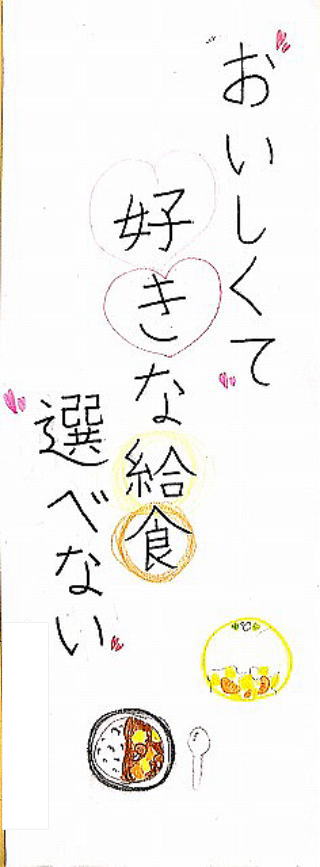 おいしくて
好きな給食
選べない